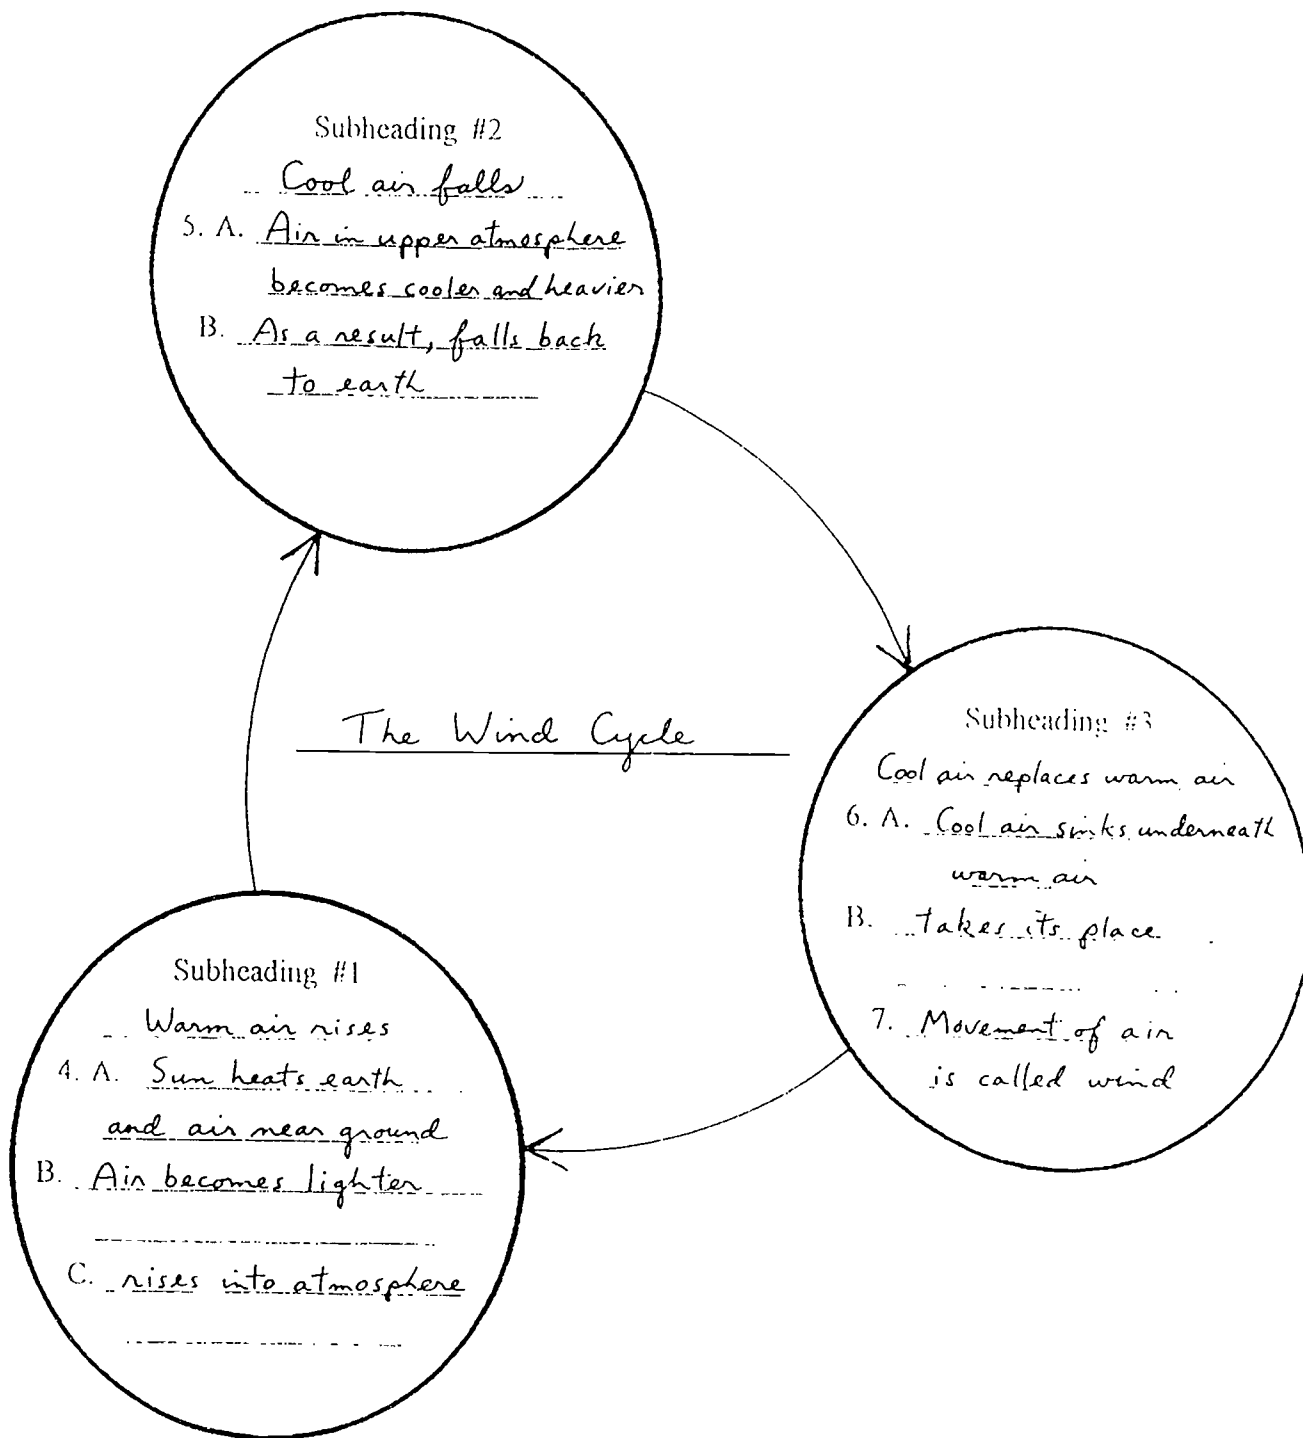 Subheading #2
Cool air falls
5. A. Air in upper atmosphere
becomes cooler and heavier
B. As a result, falls back
to earth
The Wind Cycle
Subheading #3
Cool air replaces warm air
6. A. Cool air sinks underneath
warm air
B. takes its place
7. Movement of air
is called wind
Subheading #1
Warm air rises
4. A. Sun heats earth
and air near ground
B. Air becomes lighter
C. rises into atmosphere